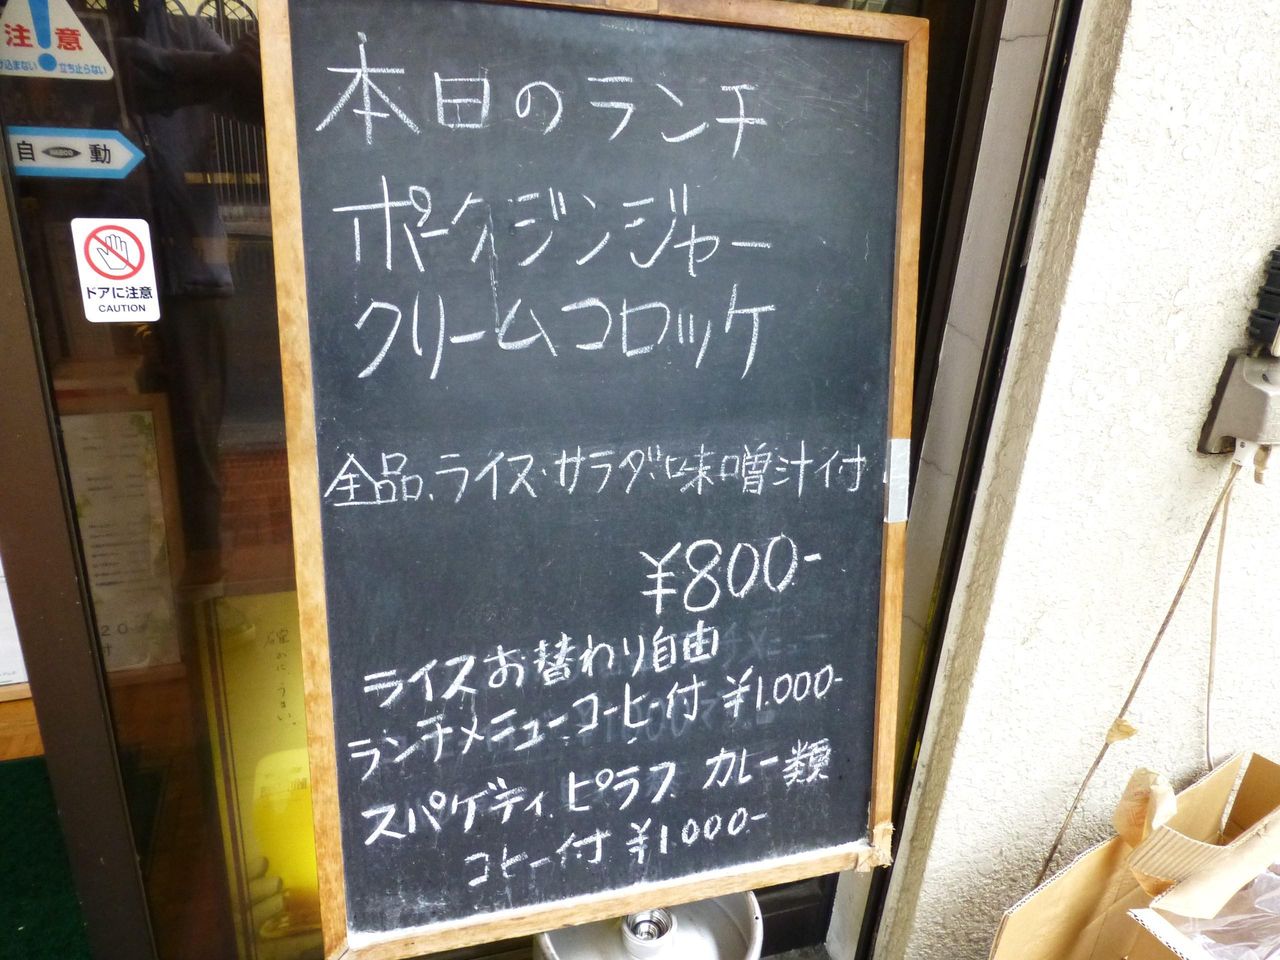 注意
立ち止らない
自動
ドアに注意
CAUTION
本日のランチ
ポークジンジャー
クリームコロッケ
全品、ライス・サラダ・味噌汁付
¥800-
ライスお替わり自由
ランチメニューコーヒー付 ¥1.000-
スパゲティ、ピラフ カレー類
コヒー付 ¥1.000-
確かにうまい。